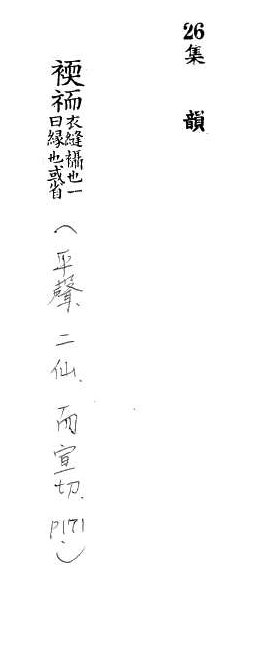 26 集韻
褗䙇衣縫襵也一曰緣也或省(平聲、二仙、而宣切、P171.)